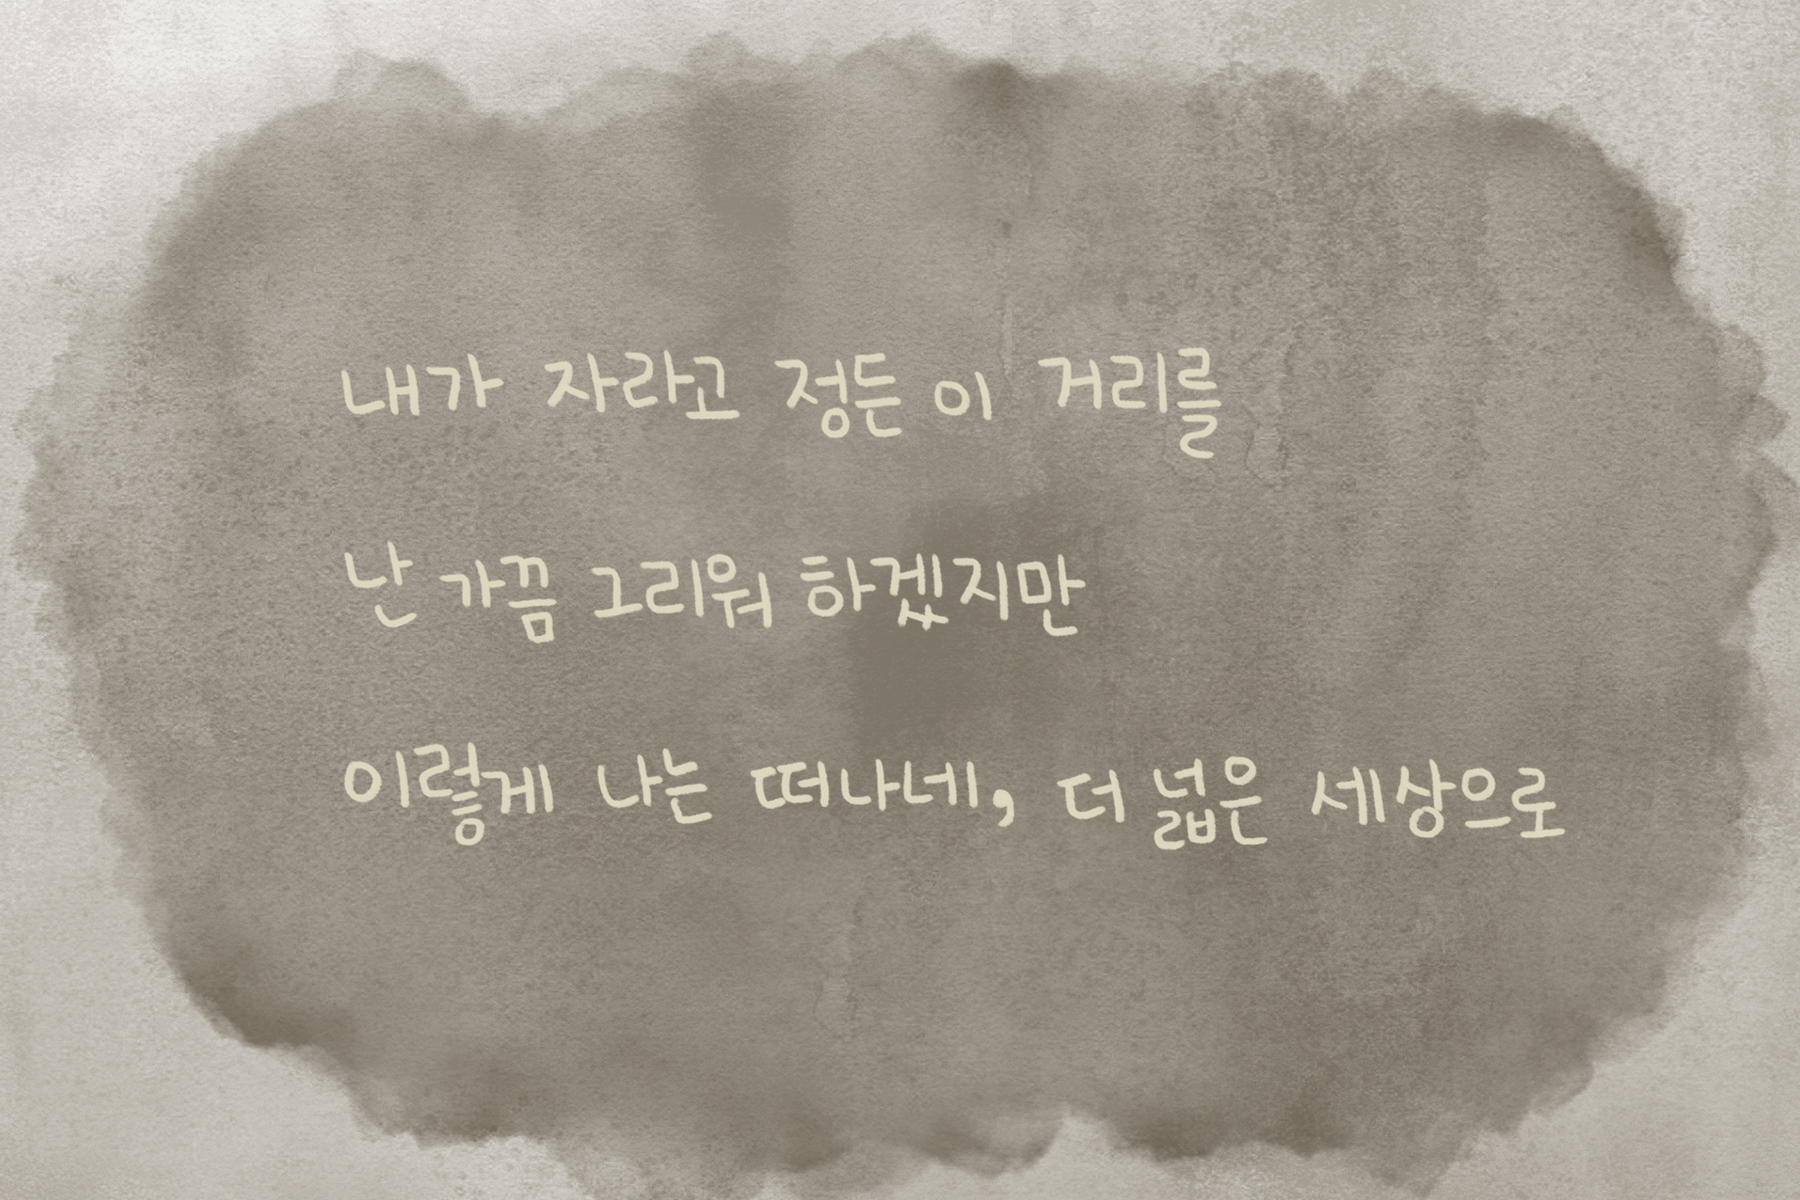 내가 자라고 정든 이 거리를
난 가끔 그리워 하겠지만
이렇게 나는 떠나네, 더 넓은 세상으로